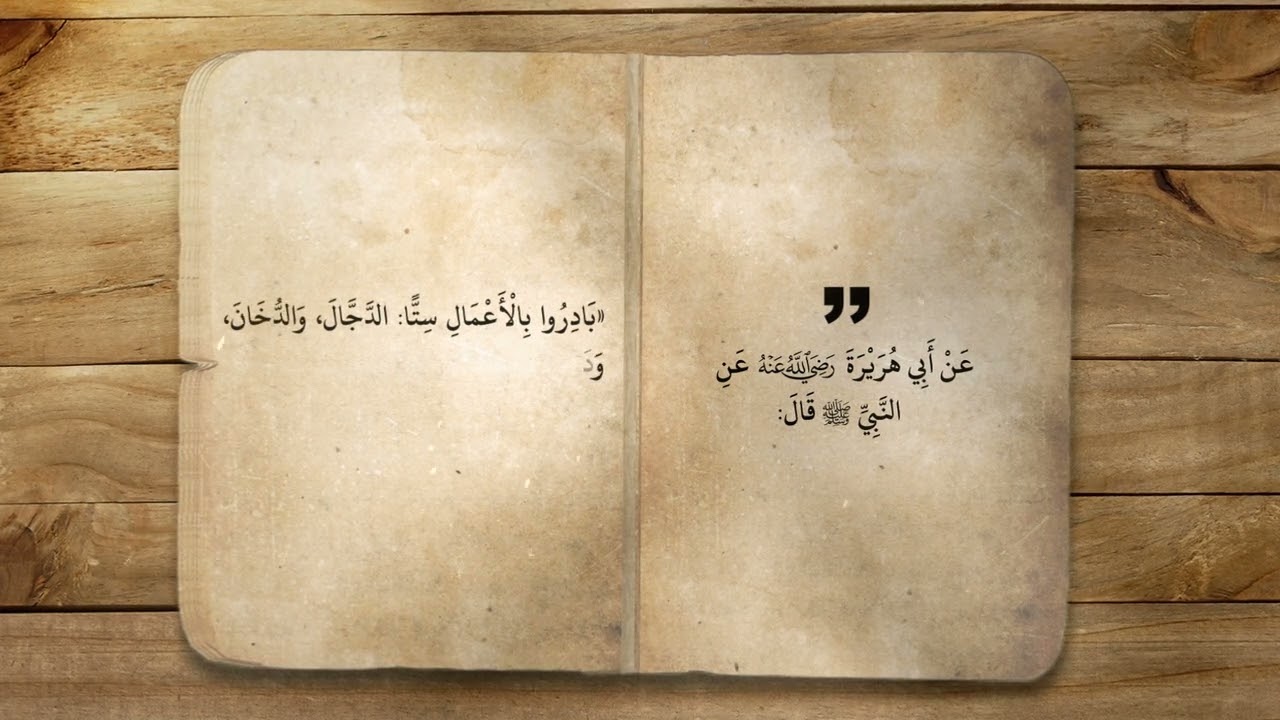 عَنْ أَبِي هُرَيْرَةَ رَضِيَ اللَّهُ عَنْهُ عَنِ
النَّبِيِّ ﷺ قَالَ:
«بَادِرُوا بِالْأَعْمَالِ سِتًّا: الدَّجَّالَ، وَالدُّخَانَ،
وَدَ